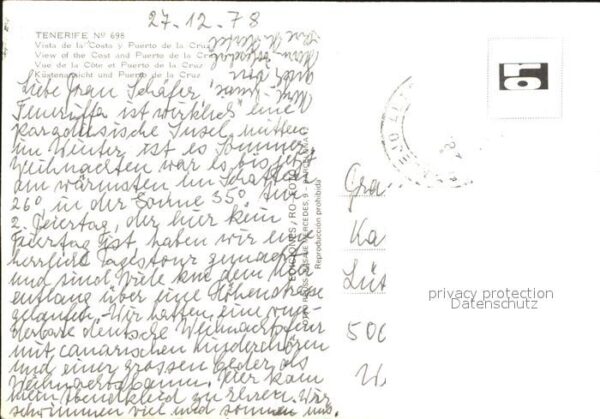 27.12.78
TENERIFE Nº 698
Vista de la Costa y Puerto de la Cruz
View of the Cost and Puerto de la Cruz
Vue de la Côte et Puerto de la Cruz
Küstenansicht und Puerto de la Cruz
Liebe Frau Schäfer,
Teneriffa ist wirklich eine
paradiesische Insel, mitten
im Winter ist es Sommer,
Weihnachten war es bis jetzt
am wärmsten im Schatten
26°, in der Sonne 35°. Am
2. Feiertag, der hier kein
Feiertag ist, haben wir eine
herrliche Tagestour gemacht
und sind viele km dem Meer
entlang über eine Höhenstrasse
gelaufen. Wir hatten eine wun-
derbare deutsche Weihnachtsfeier
mit canarischen Kinderchören
und einer grossen Zeder als
Weihnachtsbaum. Hier kam
mein Abendkleid zu Ehren. Wir
schwimmen viel und sonnen uns.
EDICIONES RO-FOTO
Reproducción prohibida
ro
Gra
Ka
Lüt
500
privacy protection
Datenschutz